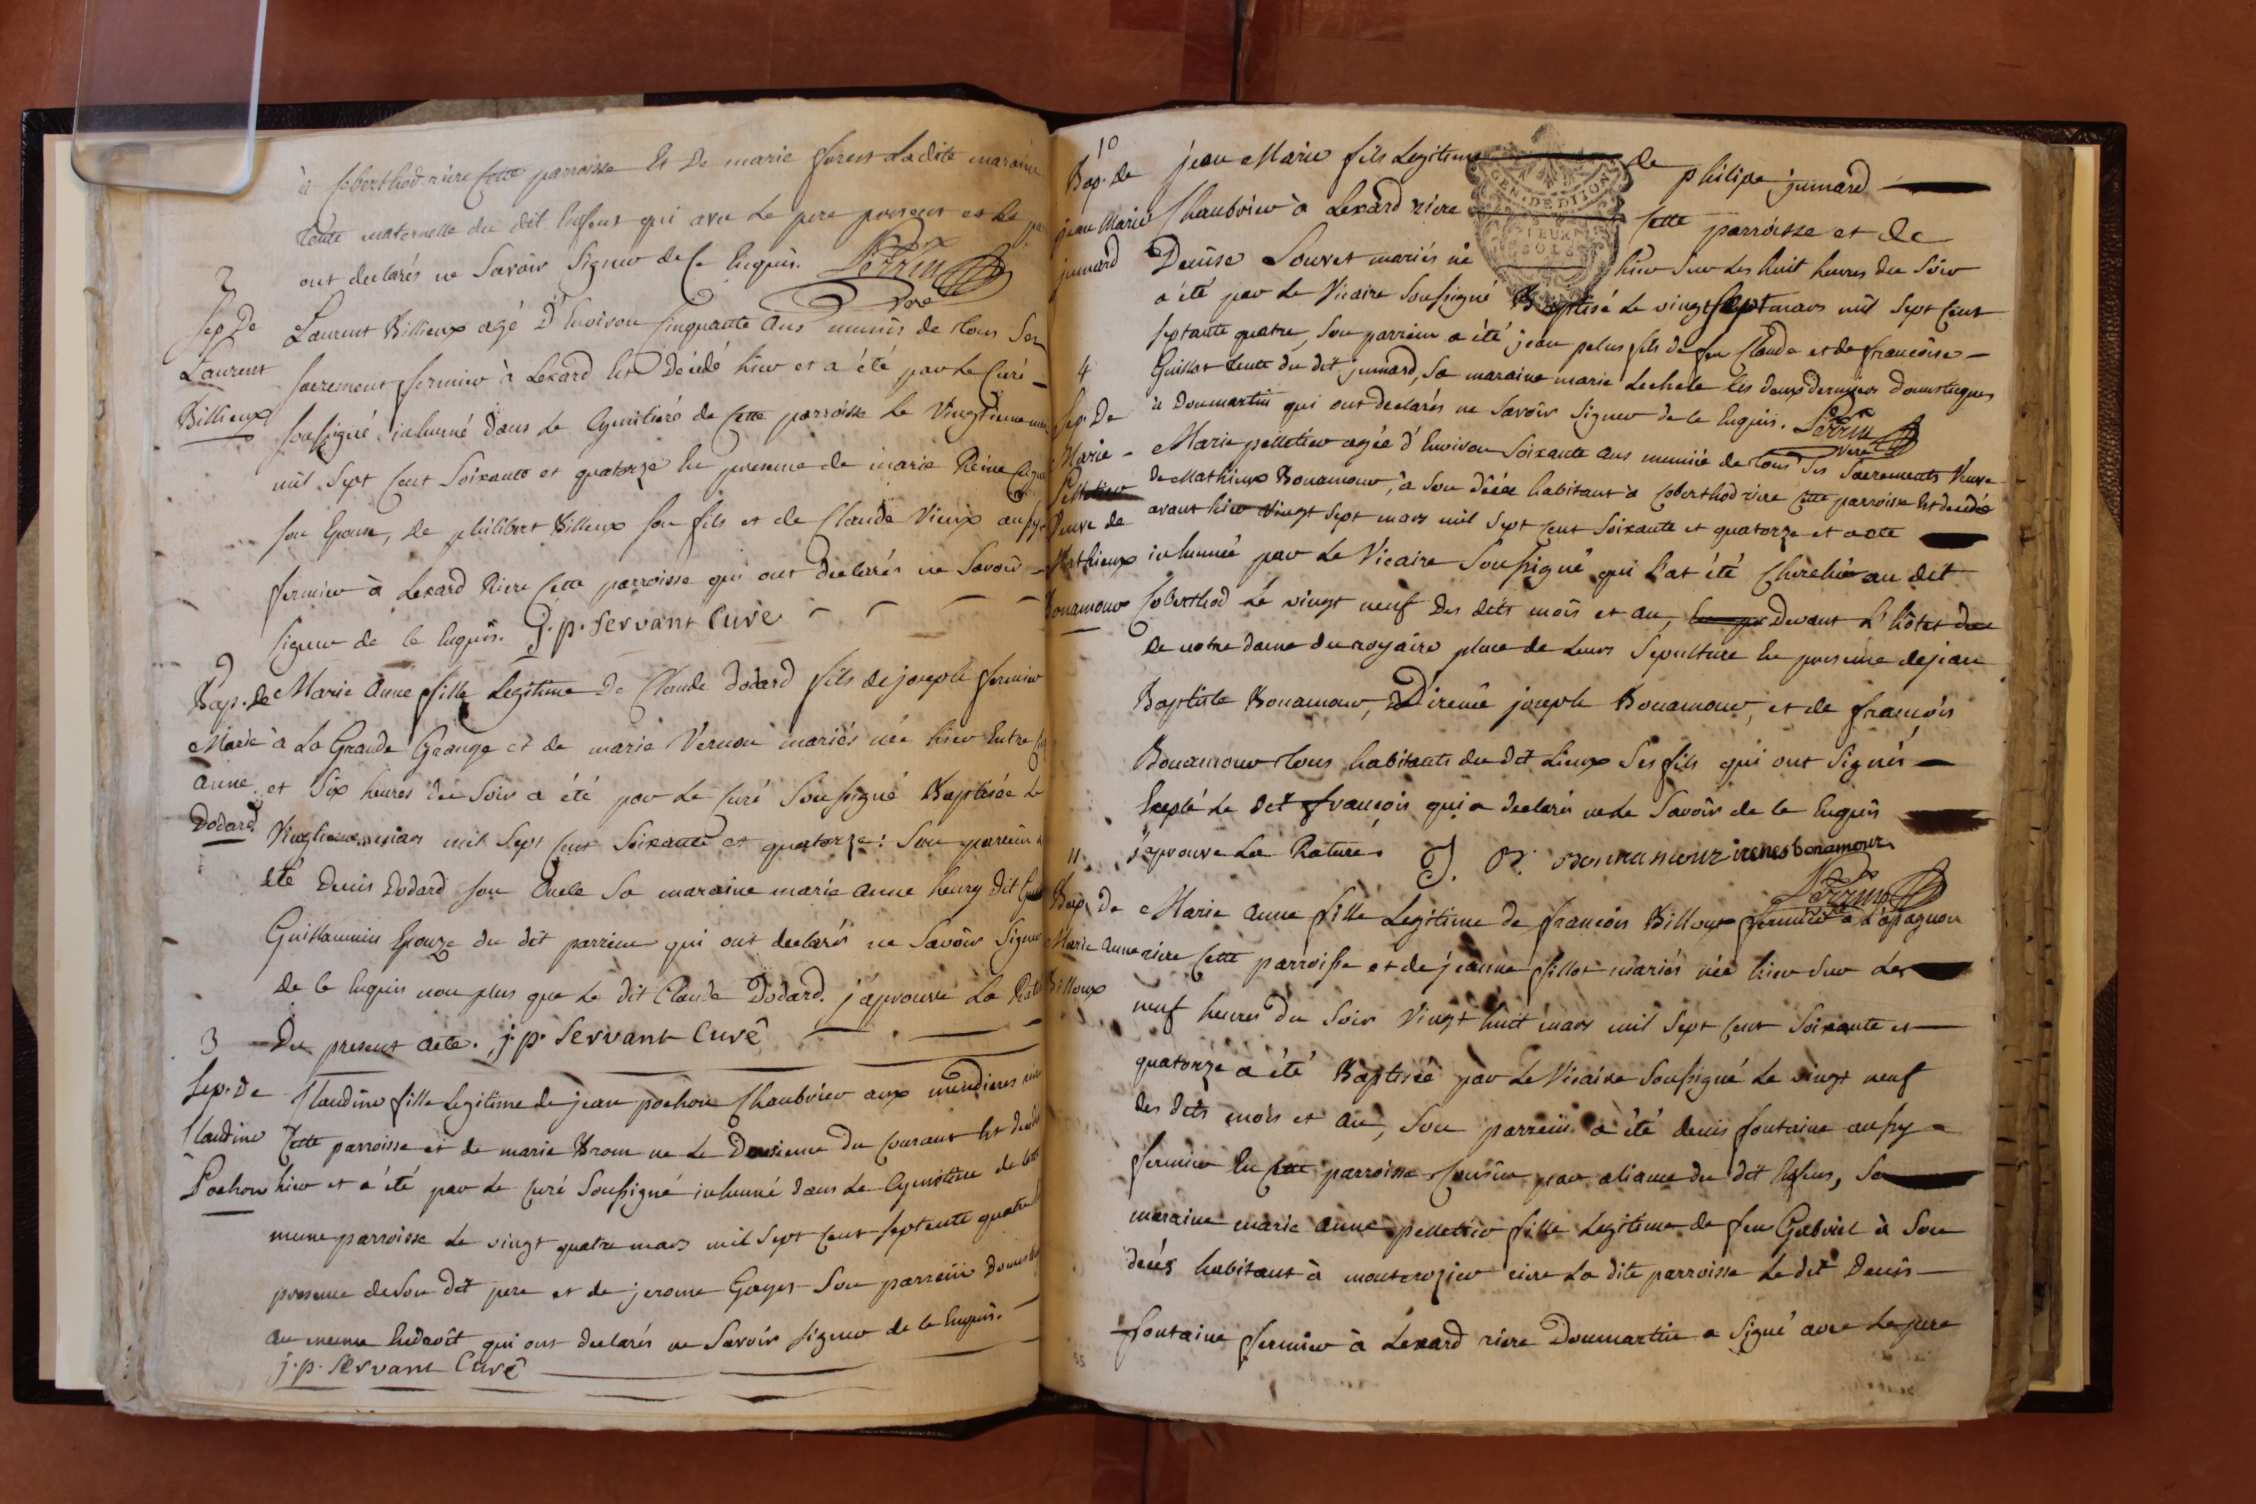 à Coberthod riere Cette parroisse Et De marie ladite maraine
tente maternelle du dit Enfent qui avec Le pere present et Le
ont declarés ne Savoir Signer de Ce Enquis. Perrin
vre
2
Sep. De
Laurent
Billieux
Laurent Billieux agé D'Environ Cinquante Ans munis de tous Ses
Sacrement fermier à Lexard Est Décédé hier et a été par Le Curé
Soussigné inhumé dans Le Cymitiere de Cette parroisse Le Vingtieme
mil Sept Cent Soixante et quatorze En presence de marie Reine
Son Epouse, de philibert Billieux Son fils et de Claude Vieux
fermier à Lexard Riere Cette parroisse qui ont declarés ne Savoir
Signer de Ce Enquis. J. p. Servant Curé
9
Bap. de
Marie
Anne
Dodard
Marie Anne fille Legitime De Claude Dodard fils de joseph fermier
à La Grande Grange et de marie Vernou mariés née hier Entre
et Six heures du Soir a été par Le Curé Soussigné Baptisée Le
mars mil Sept Cent Soixante et quatorze: Son parrein a
été Denis Dodard Son Oncle Sa maraine marie Anne henry dit
Guillaumin Epouze du dit parrein qui ont declarés ne Savoir Signer
de Ce Enquis non plus que Le dit Claude Dodard. j'aprouve La
Du present acte. j. p. Servant Curé
3
Sep. de
Claudine
Pochon
Claudine fille Legitime de jean pochon aux
Cette parroisse et de marie ne Le Du Courant Est
hier et a été par Le Curé Soussigné inhumé dans Le Cymitiere de
meme parroisse Le vingt quatre mars mil Sept Cent Septente quatre
presence de Son dit pere et de jerome Gayet Son parrein
Au meme Endroit qui ont declarés ne Savoir Signer de Ce Enquis.
j. p. Servant Curé
10
Bap. de
jean Marie
jumard
jean Marie fils Legitime de philipe jumard
à Lexard riere Cette parroisse et de
Denise Louvet mariés né hier Sur Les huit heures du Soir
a été par Le Vicaire Soussigné Baptisé Le vingt Sept mars mil Sept Cent
Septante quatre, Son parrein a été jean fils de feu Claude et de francoise
Guillot du dit jumard, Sa maraine marie Les deux derniers domestiques
à Doumartin qui ont declarés ne Savoir Signer de Ce Enquis. Perrin
vre
4
Sep. De
Marie
Pelletier
Veuve de
Mathieux
Bonamour
Marie pelletier agée d'Environ Soixante Ans munie de tous Ses Sacrements Veuve
de Mathieux Bonamour, à Son décée habitant à Coberthod riere Cette parroisse Est decédé
avant hier Vingt Sept mars mil Sept Cent Soixante et quatorze et a ete
inhumée par Le Vicaire Soussigné qui L'at été Cherché au dit
Coberthod Le vingt neuf Des dits mois et an, Devant L'hôtel
De notre dame du rozaire place de Leurs Sepulture En presence de jean
Baptiste Bonamour, D'irené joseph Bonamour, et de françois
Bonamour tous habitants du dit Lieux Ses fils qui ont Signés
Excepté Le Dit françois qui a declaré ne Le Savoir de Ce Enquis
j'aprouve La Rature. J. B. Bonnamour irenes bonamour
Perrin
11
Bap. De
Marie Anne
Billoux
Marie Anne fille Legitime de françois Billoux fermier à L'apagnou
riere Cette parroisse et de jeanne fillot mariés née hier Sur Les
neuf heures du Soir Vingt huit mars mil Sept Cent Soixante et
quatorze a été Baptisée par Le Vicaire Soussigné Le vingt neuf
des dits mois et An, Son parrein a été denis fontaine
fermier En Cette parroisse Cousin par aliance du dit Enfens, Sa
maraine marie Anne pelletier fille Legitime de feu Gabriel à Son
décés habitant à montcrozier riere La dite parroisse Le dit Denis
fontaine fermier à Lexard riere Doumartin a Signé avec Le pere